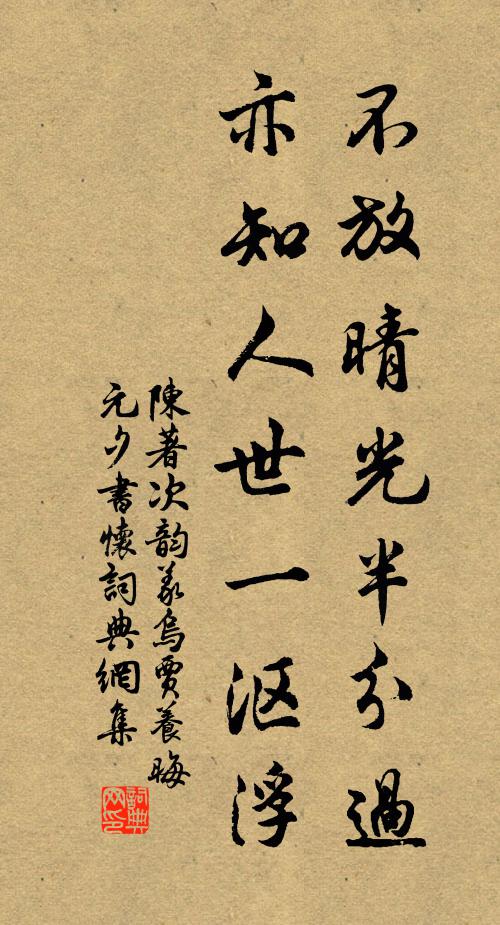 不放晴光半分過
亦知人世一漚浮
陳著次韵義烏賈養晦
元夕書懷詞典網集
詞典網印